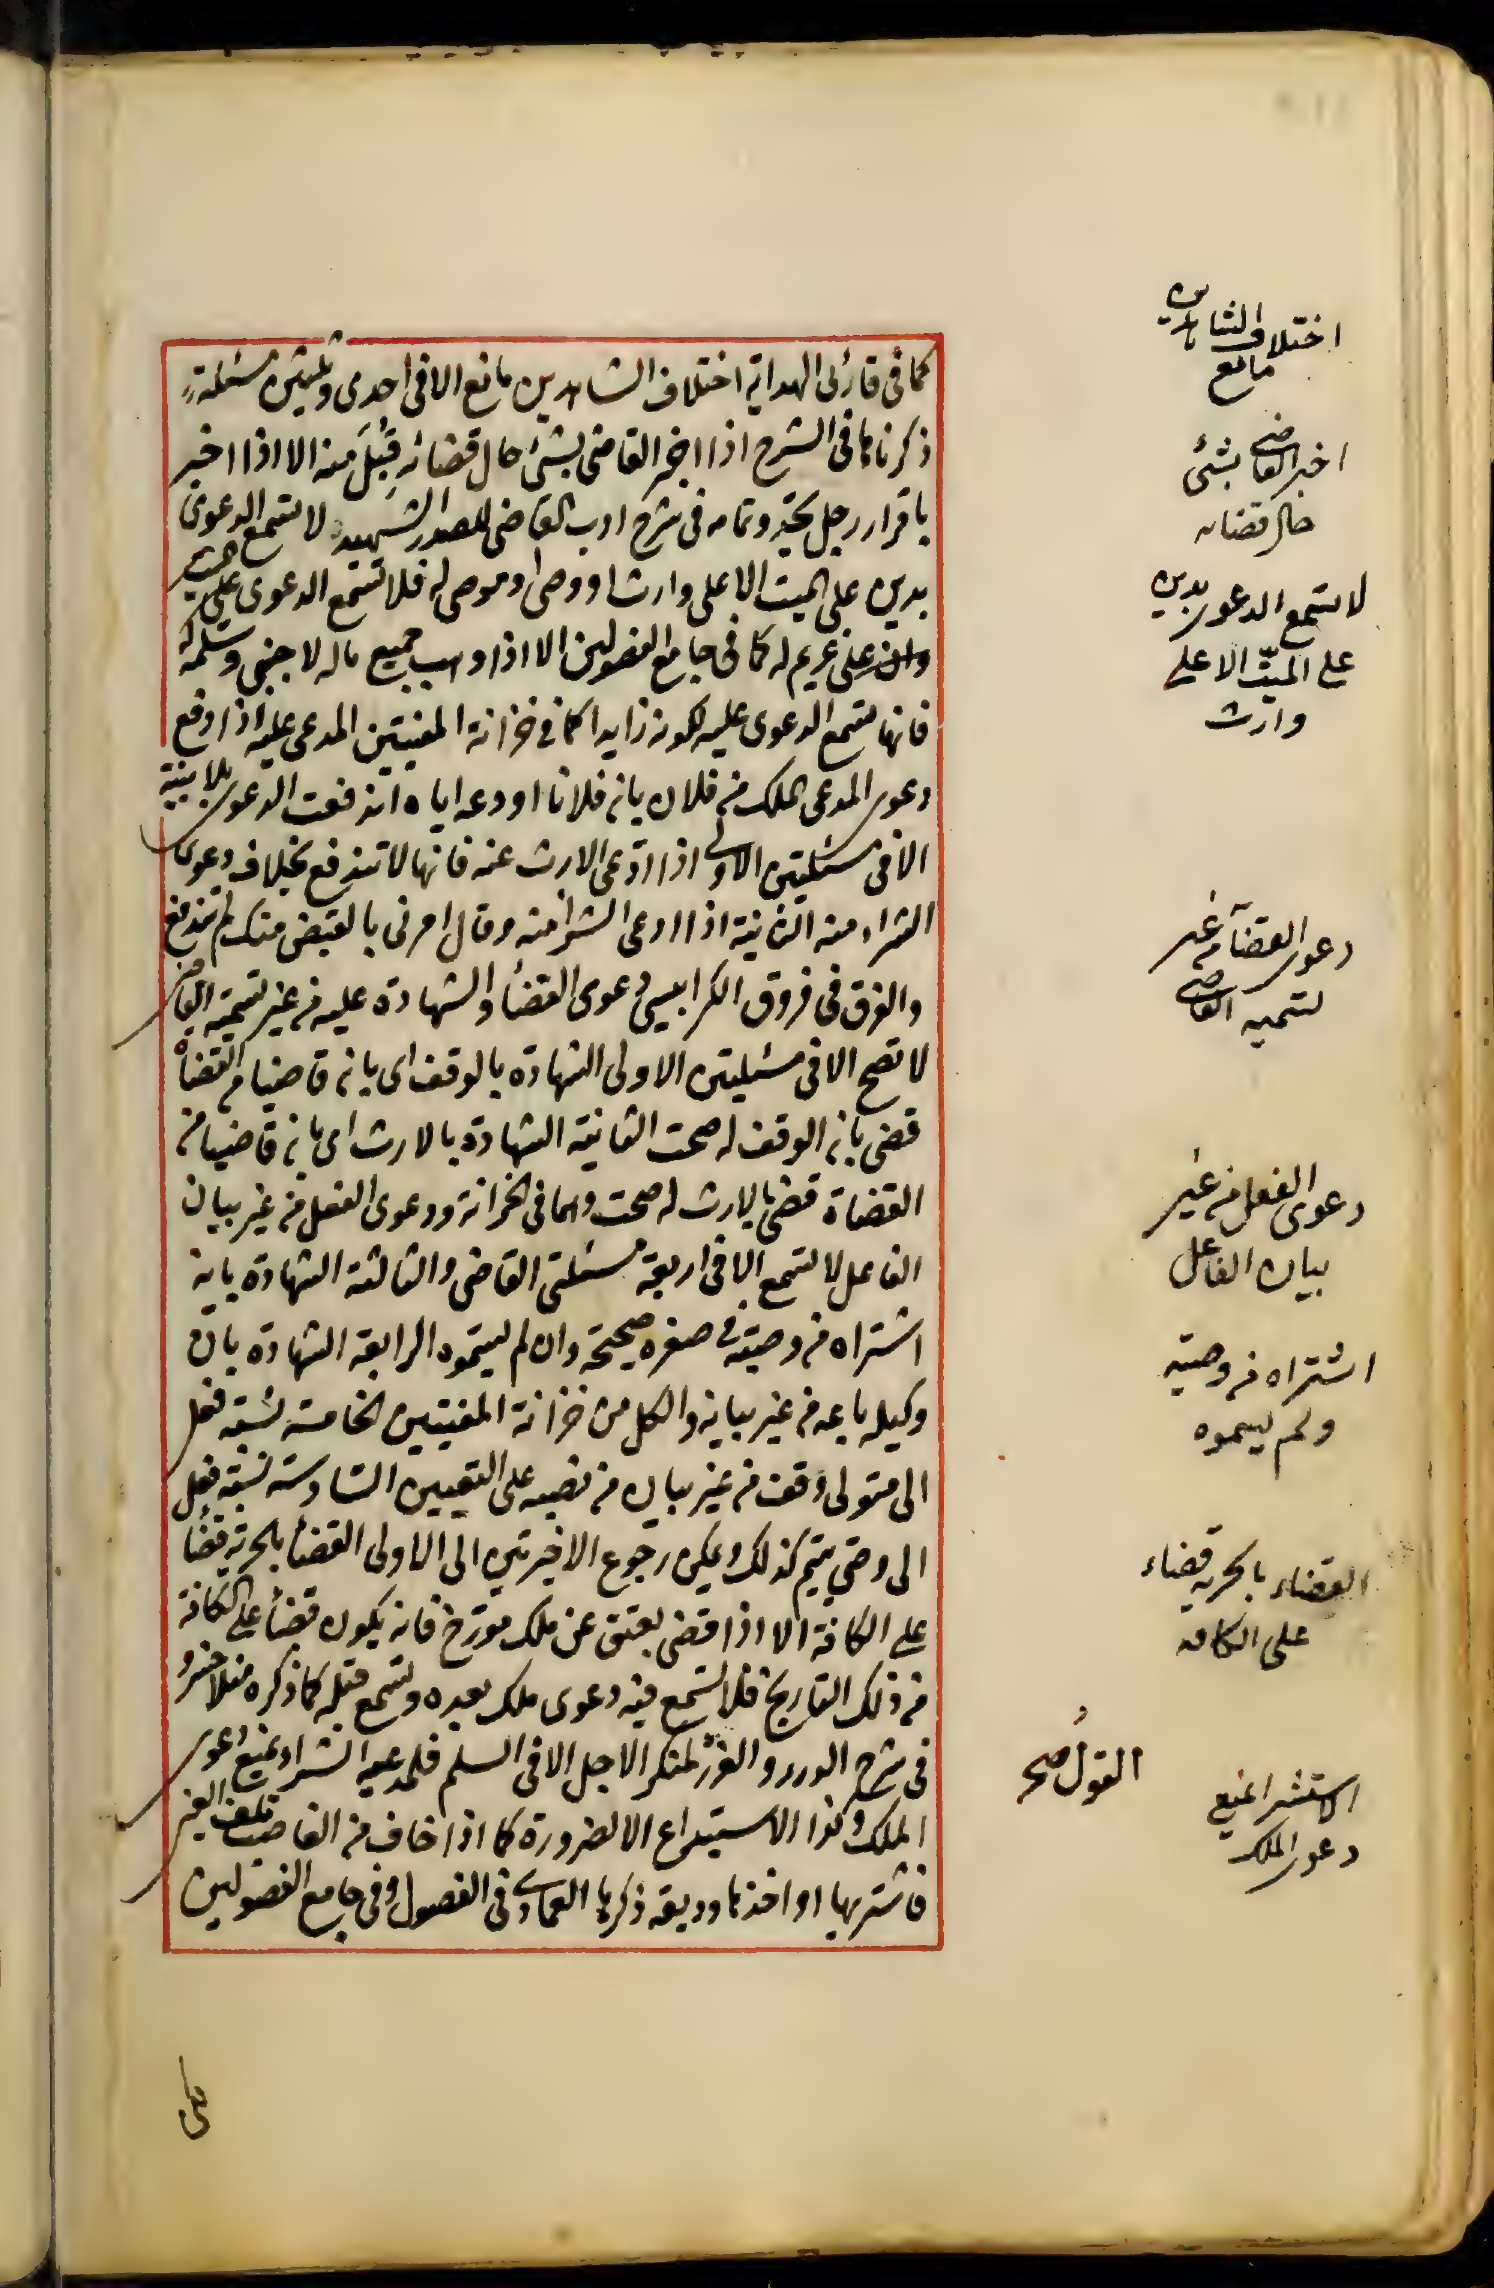 كما في قارئ الهداية اختلاف الشاهدين مانع الا في احدى وثلثين مسئلة
ذكرناها في الشرح اذا اخبر القاضي بشئ حال قضائه قُبِلَ منه الا اذا اخبر
باقرار رجل بحد وتمامه في شرح ادب القاضي للصدر الشهيد لا تسمع الدعوى
بدين على الميت الا على وارث او وصي او موصى له فلا تسمع الدعوى على
على غريم له كما في جامع الفصولين الا اذا وهب جميع ماله لاجنبي وسلمه
فانها تسمع الدعوى عليه لكونه زايدا كما في خزانة المفتيين المدعى عليه اذا دفع
دعوى المدعي الملك من فلان بانه فلانا اودعه اياه اندفعت الدعوى بلا بينة
الا في مسئلتين الاولى اذا ادّعى الارث عنه فانها لا تندفع بخلاف دعوى
الشراء منه الثانية اذا ادعى الشراء منه وقال امرني بالقبض منك لم تندفع
والفرق في فروق الكرابيسي دعوى القضأ والشهادة عليه من غير تسمية القاضي
لا تصح الا في مسئلتين الاولى الشهادة بالوقف اى بانه قاضيا من القضأة
قضى بانه الوقف له صحت الثانية الشهادة بالارث اى بانه قاضيا من
القضاة قضى بالارث له صحت وهما في الخزانة ودعوى الفعل من غير بيان
الفاعل لا تسمع الا في اربعة مسئلتى القاضي والثالثة الشهادة بانه
اشتراه من وصيّه في صغره صحيحة وان لم يسمّوه الرابعة الشهادة بان
وكيله باعه من غير بيانه والكل من خزانة المفتيين الخامسة نسبة فعل
الى متولى وقف من غير بيان من نصبه على التعيين السّادسة نسبة فعل
الى وصيّ يتيم كذلك ويمكن رجوع الاخيرتين الى الاولى القضأ بالحرية قضأ
على الكافة الا اذا قضى بعتق عن ملك مورّخ فانه يكون قضأ على الكافة
من ذلك التاريخ فلا تسمع فيه دعوى ملك بعده وتسمع قبله كما ذكره منلا خسرو
في شرح الدرر والغرر لمنكر الاجل الا في السلم فلمدعيه الشراء يمنع دعوى
الملك وكذا الاستيداع الا لضرورة كما اذا خاف من الغاصب تلف العين
فاشتريها او اخذها وديعة ذكرها العمادي في الفصول وفي جامع الفصولين
اختلاف الشاهدين
مانع
اخبر القاضي بشئ
حال قضائه
لا تسمع الدعوى بدين
على الميّت الا على
وارث
دعوى القضآء من غير
تسمية القاضي
دعوى الفعل من غير
بيان الفاعل
اشتراه من وصيّه
ولم يسموه
القضاء بالحرية قضاء
على الكافه
القول صح
الاستشراء يمنع
دعوى الملك